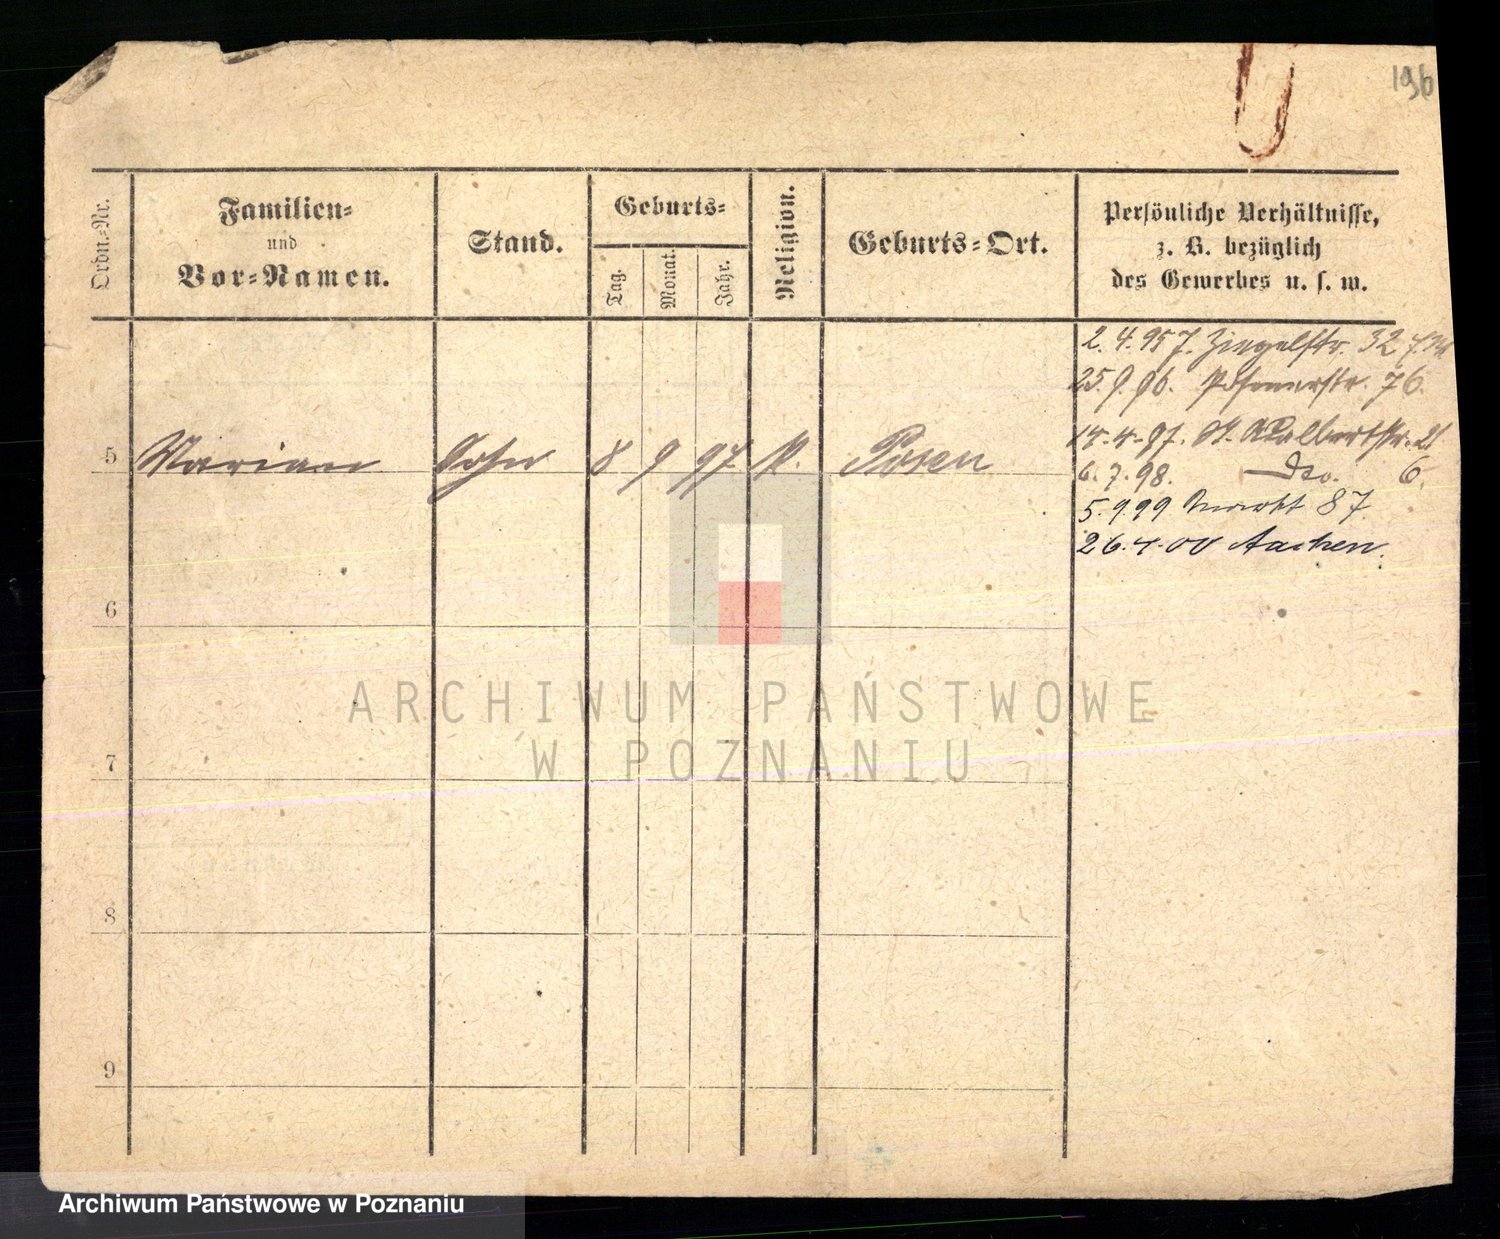 196
Ordn.-Nr.
Familien-
und
Vor-Namen.
Stand.
Geburts-
Tag.
Monat.
Jahr.
Religion.
Geburts-Ort.
Persönliche Verhältnisse,
z. B. bezüglich
des Gewerbes u. s. w.
2. 4. 95 Ziegelstr. 32
25. 9. 96. Posenerstr. 76.
14. 4. 97. St. Adalbertstr. 21
5 Marian Sohn 8 9 97 k. Posen
6. 7. 98. Dto. 6.
5. 9. 99 87
26. 4. 00 Aachen.
6
7
8
9
ARCHIWUM PAŃSTWOWE
W POZNANIU
Archiwum Państwowe w Poznaniu